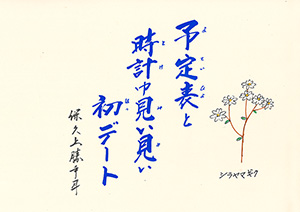 予定表と
時計見い見い
初デート
保久上勝千年
シラヤマギク